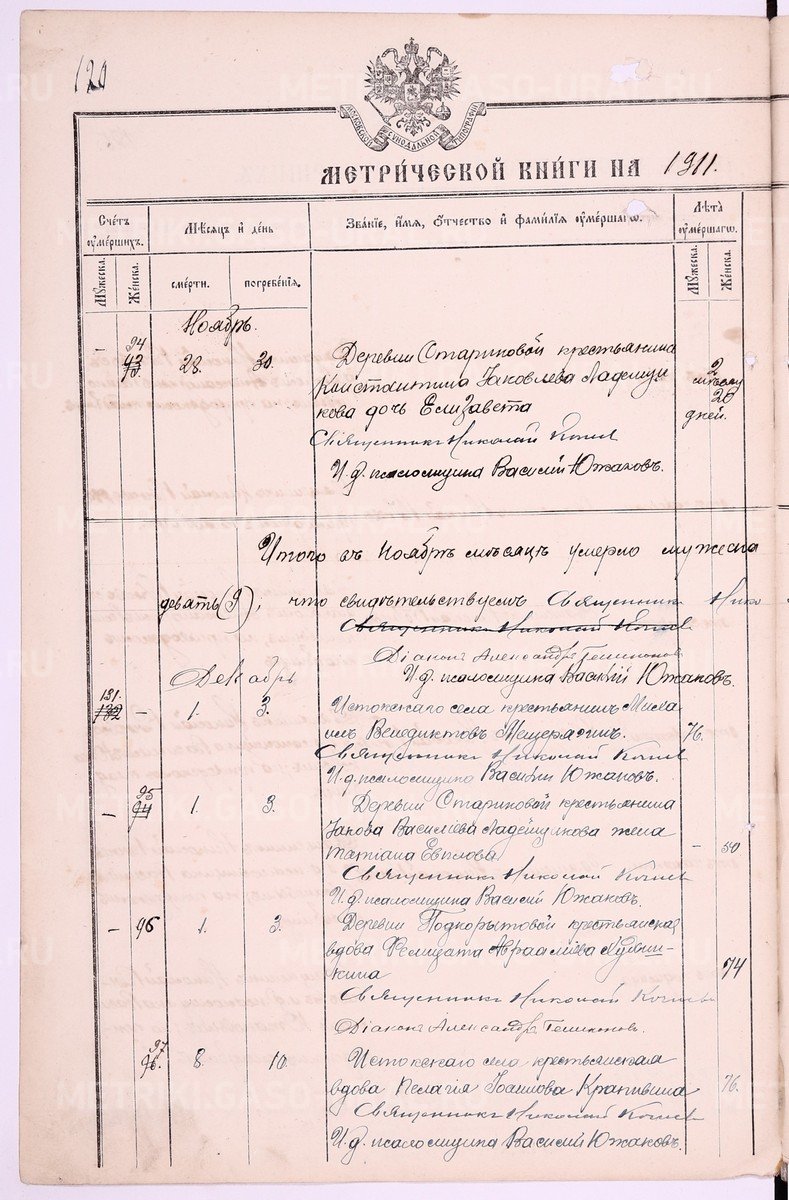 120
МОСКОВСКОЙ СѴНОДАЛЬНОЙ ТИПОГРАФІИ
МЕТРИ́ЧЕСКОЙ КНИ́ГИ НА 1911.
Счетъ ѹмершихъ.
Мѣсяцъ и день
Званіе, имя, отчество и фамилія ѹмершагѡ.
Лѣта ѹмершагѡ.
Мѹжеска.
Женска.
смерти.
погребенія.
Мѹжеска.
Женска.
Ноябрь.
94
- 93 28. 30. Деревни Стариковой крестьянина 2
Константина Яковлева месяц
кова дочь Елизавета 20
дней.
Священникъ Николай
И. д. псаломщика Василій Южаковъ.
Итого въ Ноябрѣ мѣсяцѣ умерло мужеска
девять (9), что свидѣтельствуемъ Священникъ Нико
Священникъ Николай
Діаконъ Александръ
И. д. псаломщика Василій Южаковъ.
Декабрь
131
132 - 1. 3. Истокскаго села крестьянинъ Миха
илъ Венедиктовъ Мещерягинъ. 76.
Священникъ Николай
И. д. псаломщика Василій Южаковъ.
95
- 94 1. 3. Деревни Стариковой крестьянина
Якова Василіева жена
Татіана Евплова - 50
Священникъ Николай
И. д. псаломщика Василій Южаковъ.
- 96 1. 3. Деревни Подкорытовой крестьянская
вдова Фелицата
кина 74
Священникъ Николай
Діаконъ Александръ
97
96. 8. 10. Истокскаго села крестьянская
вдова Пелагія Іоаннова Крапивина 76.
Священникъ Николай
И. д. псаломщика Василій Южаковъ.